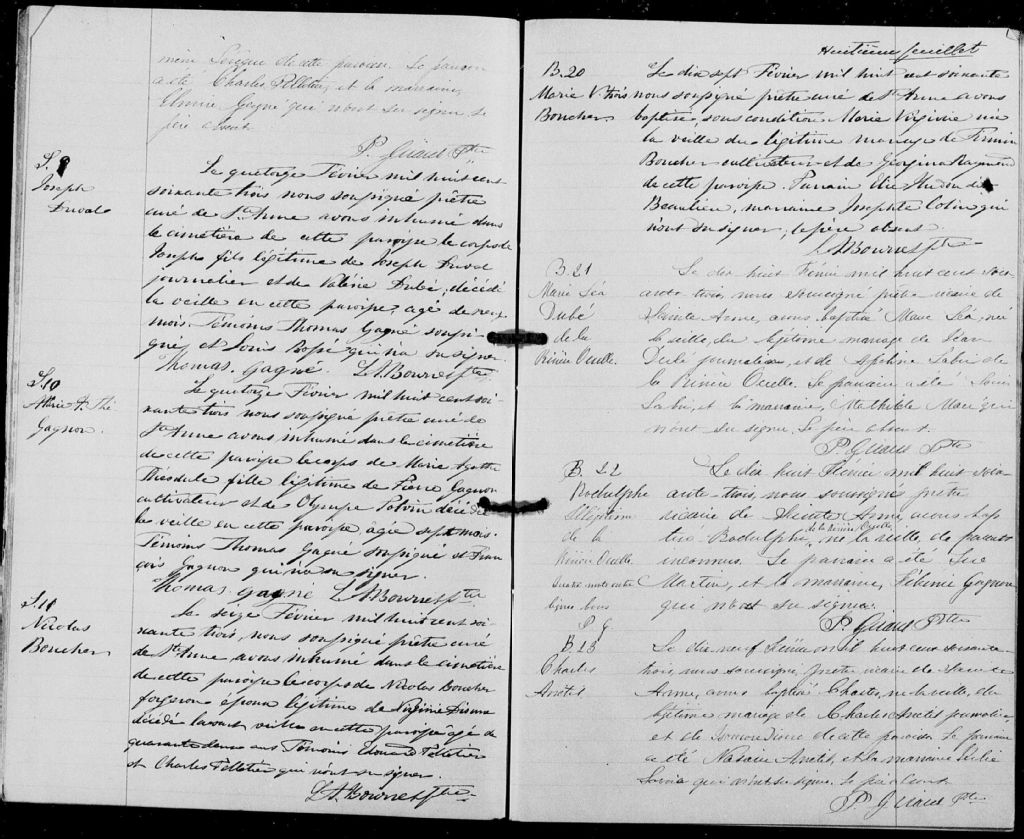 même Lévêque de cette paroisse. Le parrain
a été Charles Pelletier, et la marraine,
Elmire Gagné qui n'ont su signer, le
père absent.
P. Girard Ptre
S. 9
Joseph
Duval
Le quatorze Février mil huit cent
soixante trois nous soussigné prêtre
curé de Ste Anne avons inhumé dans
le cimetière de cette paroisse le corps de
Joseph fils légitime de Joseph Duval
journalier et de Valérie Dubé, décédé
la veille en cette paroisse, agé de
mois. Témoins Thomas Gagné soussi-
gné, et Louis qui n'a su signer.
Thomas. Gagné L. A. Bourret Ptre
S. 10
Marie A. Thé
Gagnon.
Le quatorze Février mil huit cent soi-
xante trois nous soussigné prêtre curé de
Ste Anne avons inhumé dans le cimetière
de cette paroisse le corps de Marie Agathe
Théodule fille légitime de Pierre Gagnon
cultivateur et de Olympe Potvin décédée
la veille en cette paroisse, âgée sept mois.
Témoins Thomas Gagné soussigné et Fran
çois Gagnon qui n'a su signer.
Thomas. Gagné L. A. Bourret Ptre
S. 11
Nicolas
Boucher
Le seize Février mil huit cent soi-
xante trois, nous soussigné prêtre curé
de Ste Anne, avons inhumé dans le cimetière
de cette paroisse le corps de Nicolas Boucher
forgeron époux légitime de Virginie Dionne
décédé l'avant veille en cette paroisse agé de
quarante ans Témoins Edouard Pelletier
et Charles Pelletier qui n'ont su signer.
L. A. Bourret Ptre
Huitième feuillet
B. 20
Marie V.
Boucher.
Le dix sept Février mil huit cent soixante
trois nous soussigné prêtre curé de Ste Anne avons
baptisé, sous condition, Marie Virginie née
la veille du légitime mariage de Firmin
Boucher cultivateur et de Georgina Raymond
de cette paroisse. Parrain Elie Hudon dit
Beaulieu, marraine Josephte Colin qui
n'ont su signer, le père absent
L. A. Bourret Ptre
B. 21
Marie Léa
Dubé
de la
Rivière Ouelle.
Le dix huit Février mil huit cent soix-
ante trois, nous soussigné prêtre vicaire de
Sainte Anne, avons baptisé Marie Léa, née
la veille, du légitime mariage de Jean
Dubé journalier, et de de
la Rivière Ouelle. Le parrain a été Louis
et la marraine, Mathilde qui
n'ont su signer. Le père absent.
P. Girard Ptre
B. 22
Rodulphe
de la
Rivière Ouelle
P. G.
Le dix huit Février mil huit soix-
ante-trois, nous soussigné prêtre
vicaire de Sainte Anne, avons bap-
tisé Rodulphe, de la Rivière Ouelle, né la veille, de parents
inconnus. Le parrain a été Luc
Martin, et la marraine, Gagnon
qui n'ont su signer.
P. Girard Ptre
B. 23
Charles
Anctil
Le dix neuf Février mil huit cent soixante-
trois, nous soussigné, prêtre vicaire de Sainte
Anne, avons baptisé Charles, né la veille, du
légitime mariage de Charles Anctil journalier
et de Dionne de cette paroisse. Le parrain
a été Nazaire Anctil, et la marraine
qui n'ont su signer. Le père absent
P. Girard Ptre